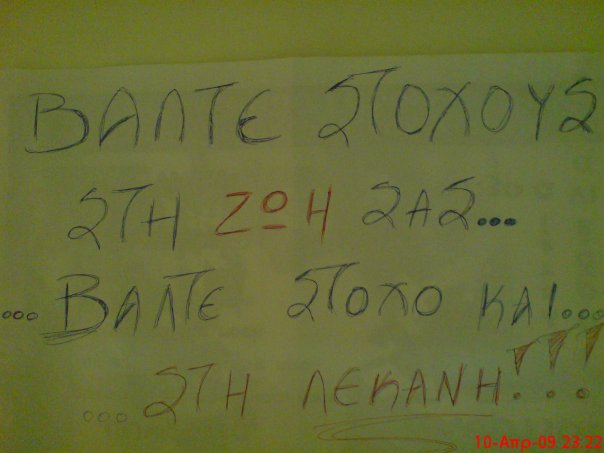 ΒΑΛΤΕ ΣΤΟΧΟΥΣ
ΣΤΗ ΖΩΗ ΣΑΣ...
...ΒΑΛΤΕ ΣΤΟΧΟ ΚΑΙ...
...ΣΤΗ ΛΕΚΑΝΗ!!!
10-Апр-09 23:22